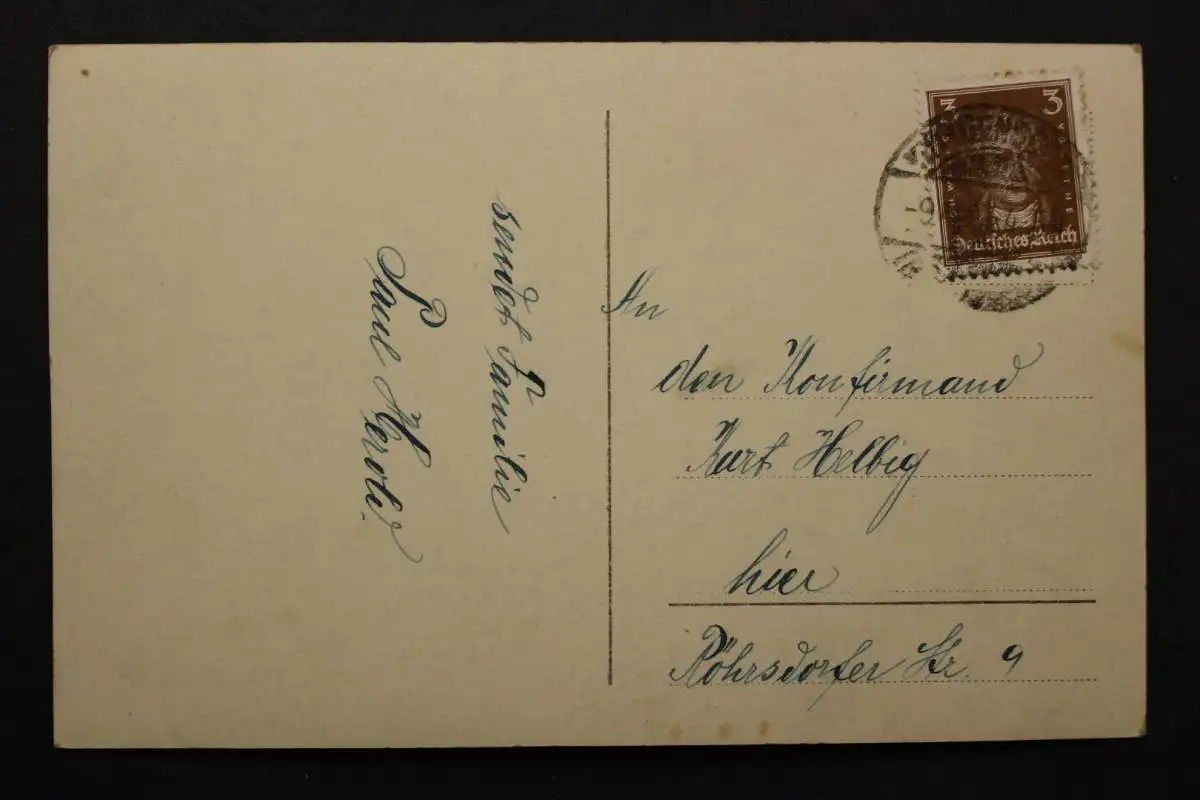 sendet Familie
Paul Herold.
3 3
Deutsches Reich
An
den Konfirmand
Kurt Helbig
hier
Röhrsdorfer Str. 9